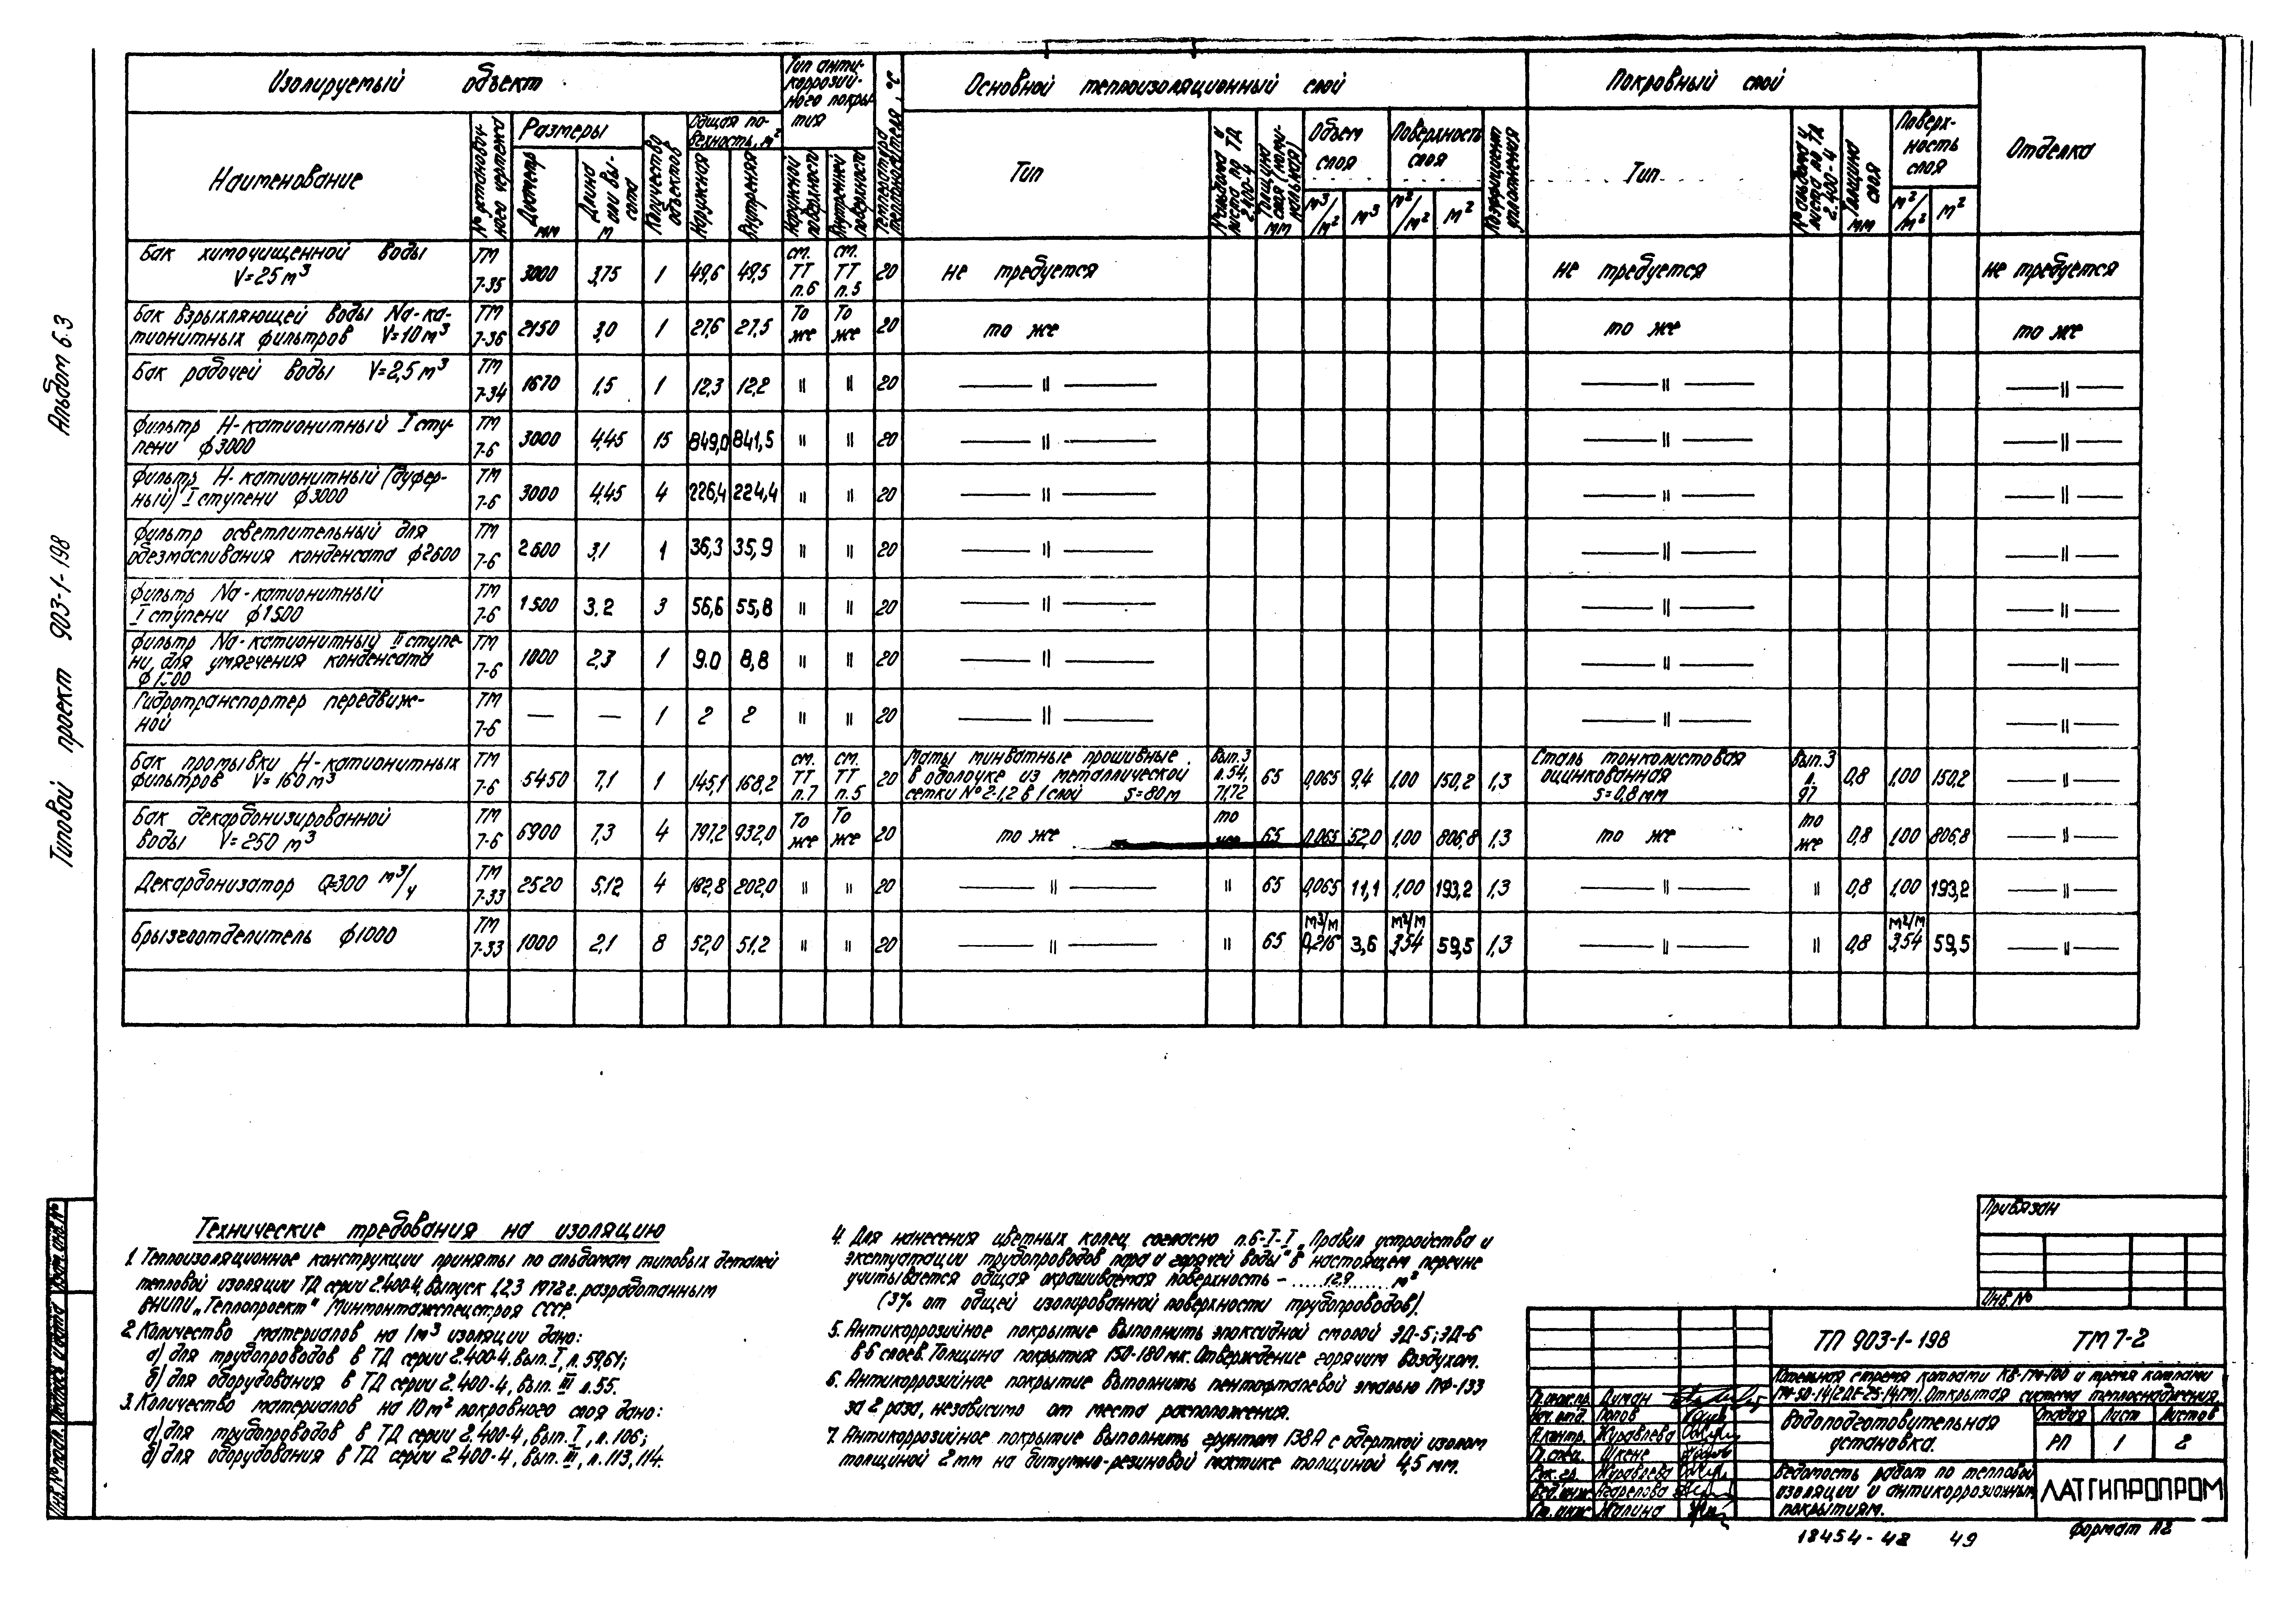 Альбом 6.3
Типовой проект 903-1-198
Изолируемый объект
Тип анти-
коррозий-
ного покры
тия
Температура теплоносителя, °С
Основной теплоизоляционный слой
Покровный слой
Отделка
Наименование
№ установоч-
ного чертежа
Размеры
Диаметр
мм
Длина
или вы-
сота
м
Количество
объектов
Общая по-
верхность, м²
Наружная
Внутренняя
Наружной
поверхности
Внутренней
поверхности
Тип
№ альбома и
листа по ТД
2.400-4
Толщина
слоя (номи-
нальная)
мм
Объем
слоя
м³/м²
м³
Поверхность
слоя
м²/м²
м²
Коэффициент
уплотнения
Тип
№ альбома и
листа по ТД
2.400-4
Толщина
слоя
мм
Поверх-
ность
слоя
м²/м²
м²
Бак химочищенной воды
V=25 м³
ТМ
7-35
3000 3,75 1 49,6 49,5
см.
ТТ
п.6
см.
ТТ
п.5
20 не требуется не требуется не требуется
Бак взрыхляющей воды Na-ка-
тионитных фильтров V=10 м³
ТМ
7-36
2150 3,0 1 27,6 27,5
То
же
То
же
20 то же то же то же
Бак рабочей воды V=2,5 м³
ТМ
7-34
1670 1,5 1 12,3 12,2 " " 20 — " — — " — — " —
Фильтр Н-катионитный I сту-
пени ф3000
ТМ
7-6
3000 4,45 15 849,0 841,5 " " 20 — " — — " — — " —
Фильтр Н-катионитный (буфер-
ный) I ступени ф3000
ТМ
7-6
3000 4,45 4 226,4 224,4 " " 20 — " — — " — — " —
Фильтр осветлительный для
обезмасливания конденсата ф2600
ТМ
7-6
2600 3,1 1 36,3 35,9 " " 20 — " — — " — — " —
Фильтр Na-катионитный
I ступени ф1500
ТМ
7-6
1500 3.2 3 56,6 55,8 " " 20 — " — — " — — " —
Фильтр Na-катионитный II ступе-
ни для умягчения конденсата
ТМ
7-6
1000 2,3 1 9.0 8,8 " " 20 — " — — " — — " —
Гидротранспортер передвиж-
ной
ТМ
7-6
— — 1 2 2 " " 20 — " — — " — — " —
Бак промывки Н-катионитных
фильтров V=160 м³
ТМ
7-6
5450 7,1 1 145,1 168,2
см.
ТТ
п.7
см.
ТТ
п.5
20
Маты минватные прошивные
в оболочке из металлической
сетки №2-1,2 в 1 слой S=80 м
Вып.3
л.54,
71,72
65 0,065 9,4 1,00 150,2 1,3
Сталь тонколистовая
оцинкованная
S=0,8 мм
Вып.3
л.
97
0,8 1,00 150,2 — " —
Бак декарбонизированной
воды V=250 м³
ТМ
7-6
6900 7,3 4 797,2 932,0
То
же
То
же
20 то же
то
же
65 0,065 52,0 1,00 806,8 1,3 то же
то
же
0,8 1,00 806,8 — " —
Декарбонизатор Q=300 м³/ч
ТМ
7-33
2520 5,12 4 182,8 202,0 " " 20 — " — " 65 0,065 11,1 1,00 193,2 1,3 — " — " 0,8 1,00 193,2 — " —
Брызгоотделитель ф1000
ТМ
7-33
1000 2,1 8 52,0 51,2 " " 20 — " — " 65
м³/м
0,216
3,6
м²/м
3,54
59,5 1,3 — " — " 0,8
м²/м
3,54
59,5 — " —
Технические требования на изоляцию
1. Теплоизоляционное конструкции приняты по альбомам типовых деталей
тепловой изоляции ТД серии 2.400-4, выпуск 1,2,3 1972 г. разработанным
ВНИПИ „Теплопроект" Минмонтажспецстроя СССР.
2. Количество материалов на 1м³ изоляции дано:
а) для трубопроводов в ТД серии 2.400-4, вып. I, л. 59,61;
б) для оборудования в ТД серии 2.400-4, вып. III л.55.
3. Количество материалов на 10 м² покровного слоя дано:
а) для трубопроводов в ТД серии 2.400-4, вып. I, л.106;
б) для оборудования в ТД серии 2.400-4, вып. III, л.113,114.
4. Для нанесения цветных колец согласно п.6-I-I „Правил устройства и
эксплуатации трубопроводов пара и горячей воды" в настоящем перечне
учитывается общая окрашиваемая поверхность - ..... 12.9 ..... м²
(3% от общей изолированной поверхности трубопроводов).
5. Антикоррозийное покрытие выполнить эпоксидной смолой ЭД-5; ЭД-6
в 6 слоев. Толщина покрытия 150-180 мк. Отверждение горячим воздухом.
6. Антикоррозийное покрытие выполнить пентафталевой эмалью ПФ-133
за 2 раза, независимо от места расположения.
7. Антикоррозийное покрытие выполнить грунтом 138А с оберткой изолом
толщиной 2 мм на битумно-резиновой мастике толщиной 4,5 мм.
Привязан
Инв.№
ТП 903-1-198 ТМ 7-2
Котельная с тремя котлами КВ-ГМ-100 и тремя котлами
ГМ-50-14/2(ДЕ-25-14ГМ). Открытая система теплоснабжения
Гл.инж.пр. Диман
Нач.отд. Попов
Н.контр. Журавлева
Гл.спец. Шкене
Рук.гр. Журавлева
Вед.инж.
Ст. инж. Жалина
Водоподготовительная
установка.
Стадия Лист Листов
РП 1 2
Ведомость работ по тепловой
изоляции и антикоррозионным
покрытиям.
ЛАТГИПРОПРОМ
18454-48 49
Формат А2
Инв.№ подл. Подпись и дата Взам.инв.№